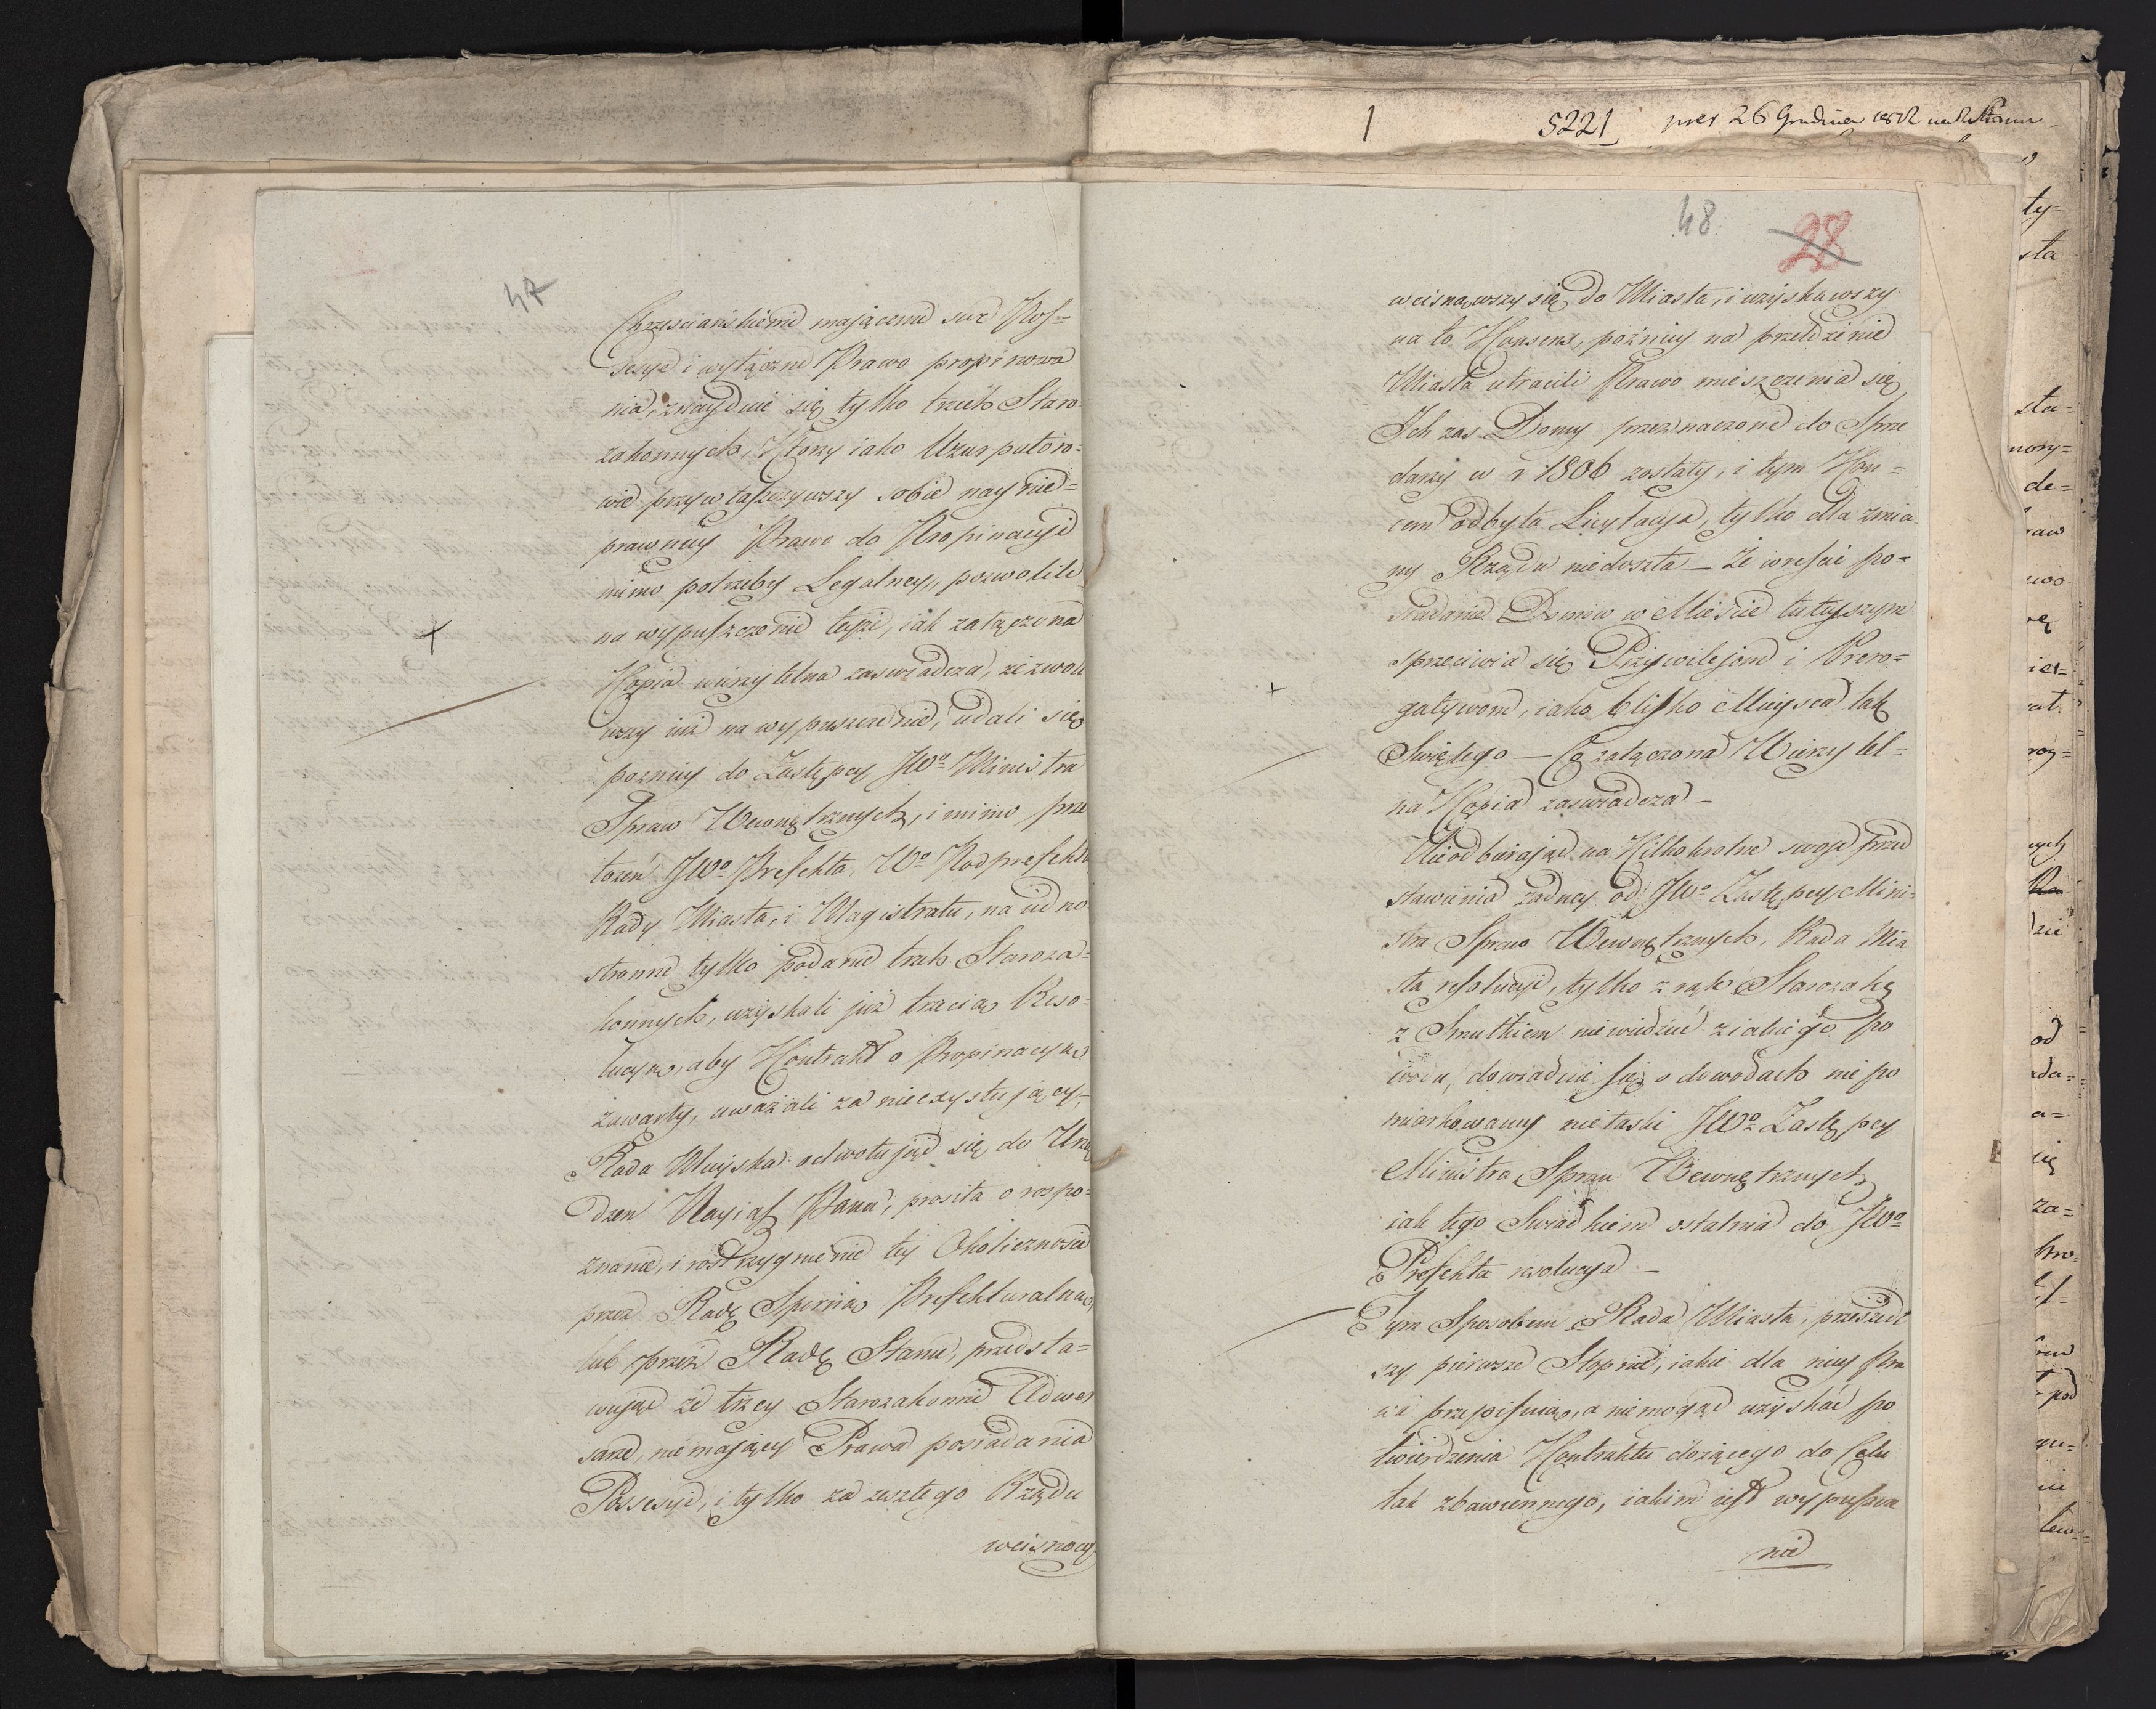 1 5221 pres 26 Grudnia
47
Chrzesciańskiemu maiącemu swe Pos=
sesye i wyłączne Prawo propinowa
nia, znayduie się tylko trzech Staro
zakonnych, Ktorzy iako Uzurpatoro=
wie przywłaszczywszy sobie nay nie=
prawney Prawo do Propinacyi
mimo potrzeby Legalney, pozwolili
na wypuszczenie teyże, iak załączona
Kopia wierzytelna zaswiadcza, ze zwoli
wszy iuż na wypuszczenie, udali się
pozniey do Zastępcy JWo Ministra
Spraw Wewnętrznych, i mimo prze
łożeń JWo Prefekta, Wo Podprefekta
Rady Miasta, i Magistratu, na iedno
stronne tylko podanie trzech Staroza=
konnych, uzyskali już trzecią Rezo=
lucyą, aby Kontrakt o Propinacyą
zawarty, uważali za nieexystujący,
Rada Mieyska odwołując się do Urzą
dzeń Nayias Pana, prosiła o rospo=
znanie, i rostrzygnienie tey Okoliczności
przez Radę Sporną Prefekturalną,
lub przez Radę Stanu, przedsta=
wując że trzey Starozakonni Adwer
sarze, nie mający Prawa posiadania
Possesyi, i tylko za zeszłego Rządu
wcisnąw
48 28
wcisnąwszy się do Miasta, i uzyskawszy
na to Konsens, pozniey na przełożenie
Miasta utracili Prawo mieszczenia się,
Ich zas Domy przeznaczone do Sprze
daży w r 1806 zostały, i tym Koń=
cem odbyta Licytacya, tylko dla zmia
ny Rządu niedoszła – Że wreście po=
siadanie Domow w Mieście tuteyszym
sprzeciwia się Przywilejom i Prero=
gatywom, iako blisko Mieysca tak
Swiętego – Co załączona Wierzytel=
na Kopia zaswiadcza –
Nieodbierając na Kilkokrotne swoje przed
stawienia żadney od JWo Zastępcy Mini=
stra Spraw Wewnętrznych, Rada Mia
sta resolucyi, tylko z rąk Starozako
z Smutkiem niewidzieć z iakiego po
wodu, dowiaduie się o dowodach nie po
miarkowaney niełaski JWo Zastępcy
Ministra Spraw Wewnętrznych
iak tego Swiadkiem ostatnia do JWo
Prefekta rezolucya –
Tym Sposobem Rada Miasta, przeszedł
szy pierwsze Stopnie, iakie dla niey Pra
wa przepisuią, a niemogąc uzyskać po
twierdzenia Kontraktu dożącego do Celu
tak zbawiennego, iakim iest wypuszcze
nie